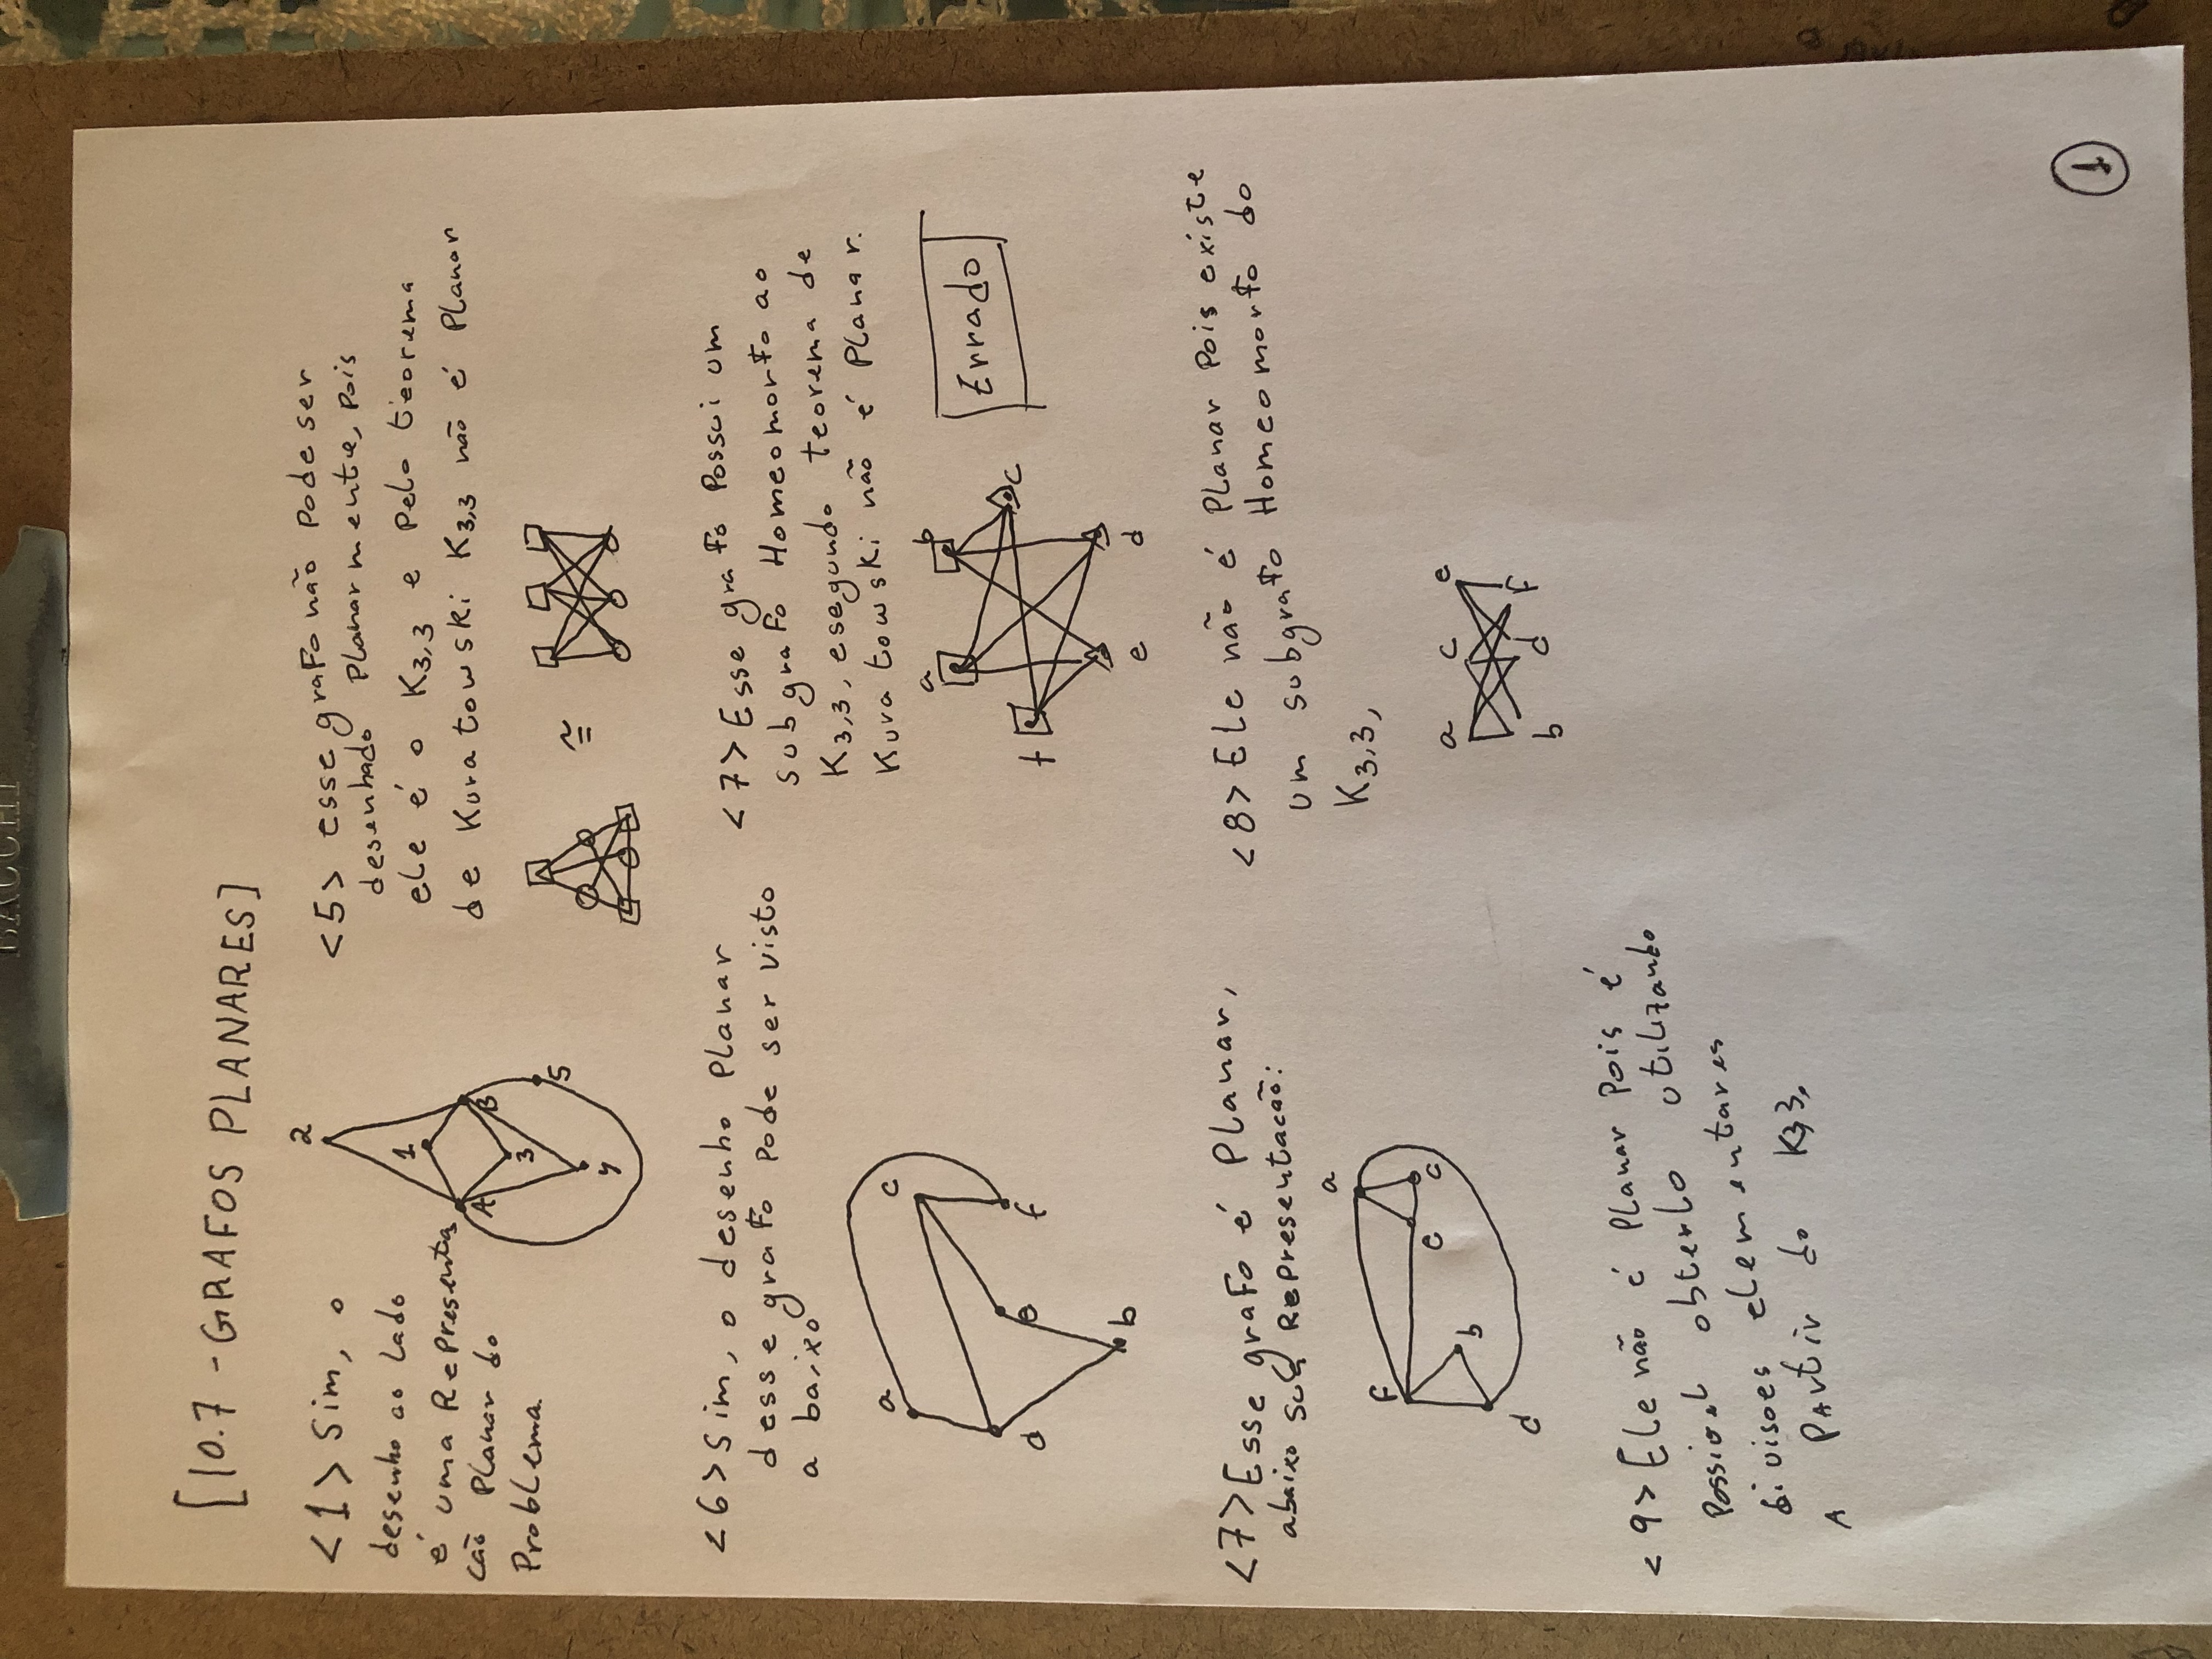 BACCHI
[10.7 - GRAFOS PLANARES]
<1> Sim, o
desenho ao lado
é uma Representa
cão Planar do
Problema.
2
1
A
B
3
5
4
<5> esse grafo não Pode ser
desenhado Planarmente, pois
ele é o K3,3 e Pelo teorema
de Kuratowski K3,3 não é Planar
≅
<6> Sim, o desenho Planar
desse grafo Pode ser visto
a baixo
a
c
d
e
f
b
<7> Esse grafo Possui um
subgrafo Homeomorfo ao
K3,3, e segundo teorema de
Kuratowski não é Planar.
a
b
f
c
e
d
Errado
<7> Esse grafo é Planar,
abaixo sua Representacão:
a
f
e
c
b
d
<8> Ele não é Planar Pois existe
um subgrafo Homeomorfo do
K3,3,
a c e
b d f
<9> Ele não é Planar Pois é
Possivel obterlo utilizando
divisoes elementares
A PArtir do K3,3.
1